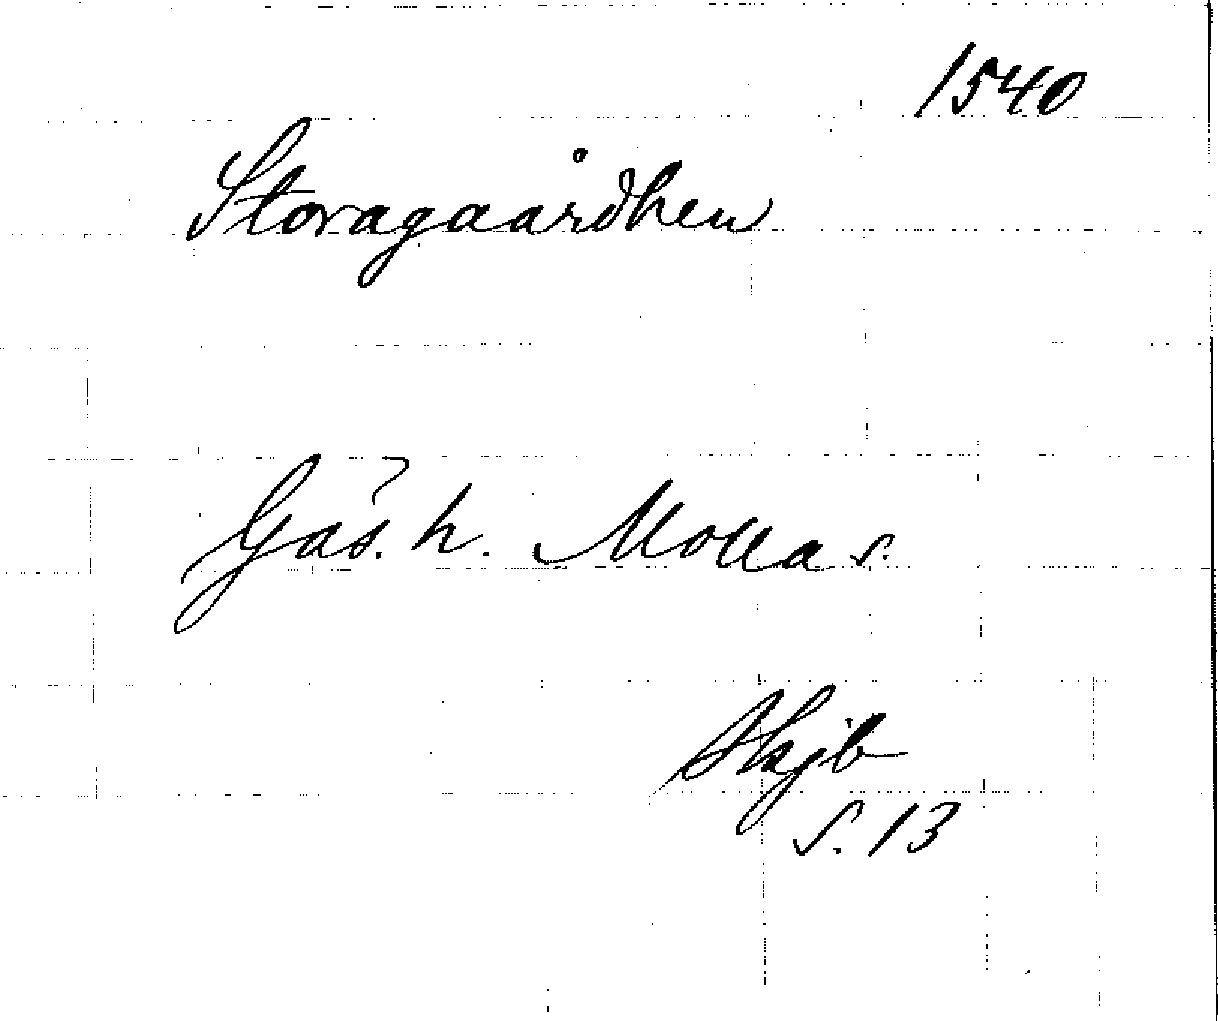 1540
Storagaardhen
Gäs. h. Molla s.
Skjb
s. 13